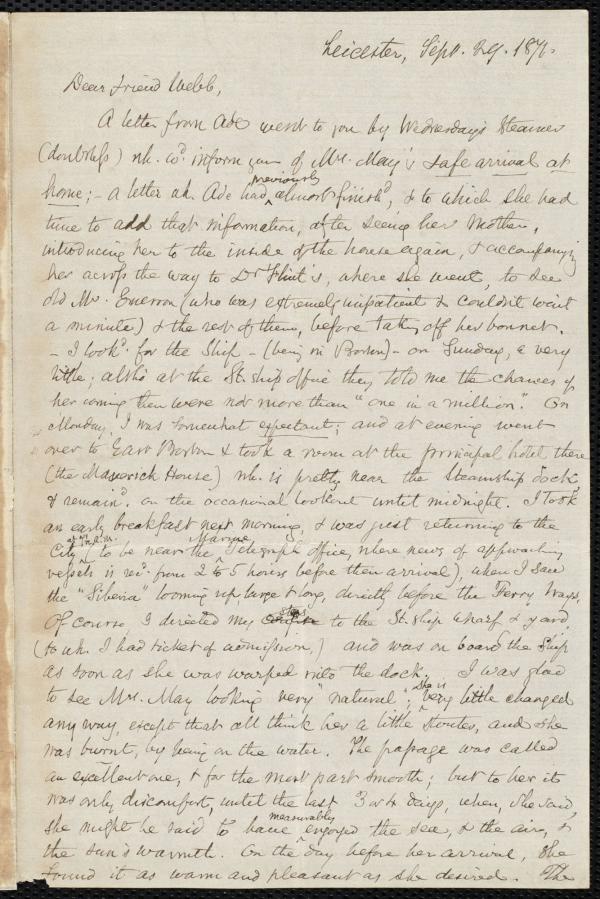 Leicester, Sept. 29. 187
Dear friend Webb,
A letter from Abe went to you by Wednesday's Steamer
(doubtless) wh. wd. inform you of Mrs. May's safe arrival at
home; - a letter wh. Abe had previously almost finishd, & to which she had
time to add that information, after seeing her Mother,
introducing her to the inside of the house again, & accompanying
her across the way to Dr Flint's, where she went, to see
old Mr. Emerson (who was extremely impatient & couldn't wait
a minute) & the rest of them, before taking off her bonnet.
- I lookd. for the Ship - (being in Boston) - on Sunday, a very
little; altho' at the St. ship office they told me the chances of
her coming then were not more than "one in a million". On
Monday, I was somewhat expectant; and at evening went
over to East Boston & took a room at the principal hotel there
(the Maverick House) wh. is pretty near the Steamship dock,
& remaind. on the occasional lookout until midnight. I took
an early breakfast next morning, & was just returning to the
City at 7 a.m. (to be near the Marine Telegraph office, where news of approaching
vessels is recd. from 2 to 5 hours before their arrival), when I saw
the "Siberia" looming up, large & long, directly before the Ferry Ways.
Of course, I directed my steps to the St. ship wharf & yard,
(to wh. I had ticket of admission,) and was on board the Ship
as soon as she was warped into the dock. I was glad
to see Mrs. May looking very "natural"; She is very little changed
any way, except that all think her a little stouter, and she
was burnt, by being on the water. The passage was called
an excellent one, & for the most part smooth; but to her it
was only discomfort, until the last 3 or 4 days, when, she said,
she might be said to have measurably enjoyed the sea, & the air, &
the sun's warmth. On the day before her arrival, she
found it as warm and pleasant as she desired. The